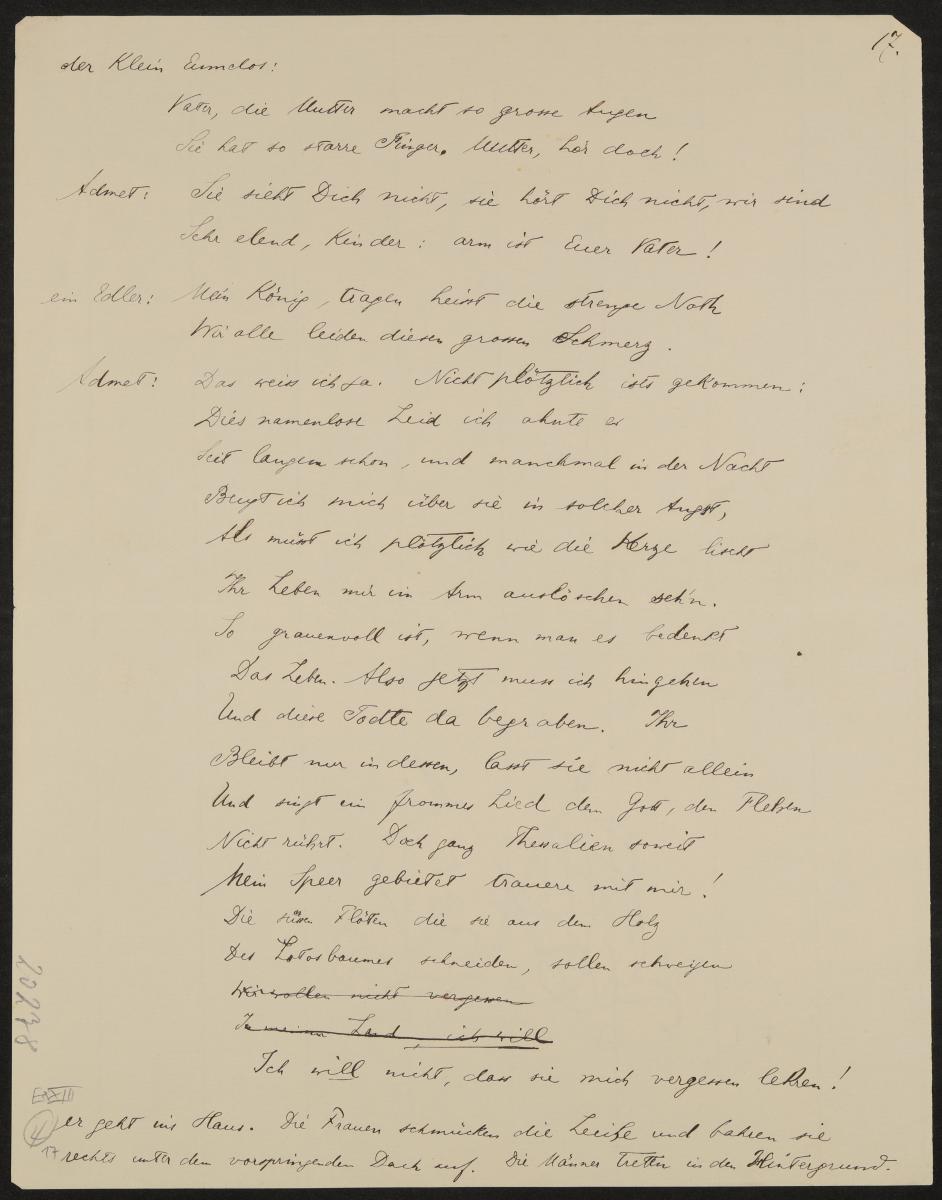 17.
der Klein Eumelos:
Vater, die Mutter macht so grosse Augen
Sie hat so starre Finger. Mutter, hör doch!
Admet: Sie sieht Dich nicht, sie hört Dich nicht, wir sind
Sehr elend, Kinder: arm ist Euer Vater!
ein Edler: Mein König, tragen heisst die strenge Noth
Wir alle leiden diesen grossen Schmerz.
Admet: Das weiss ich ja. Nicht plötzlich ists gekommen:
Dies namenlose Leid ich ahnte es
Seit langem schon, und manchmal in der Nacht
Beugt ich mich über sie in solcher Angst,
Als müsst ich plötzlich wie die Kerze lischt
Ihr Leben mir im Arm auslöschen seh'n.
So grauenvoll ist, wenn man es bedenkt
Das Leben. Also jetzt muss ich hingehen
Und diese Todte da begraben. Ihr
Bleibt nur indessen, lasst sie nicht allein
Und singt ein frommes Lied dem Gott, den Flehen
Nicht rührt. Doch ganz Thessalien soweit
Mein Speer gebietet trauere mit mir!
Die süssen Flöten die sie aus dem Holz
Des Lotosbaumes schneiden, sollen schweigen
Wir wollen nicht vergessen
In meinem Land, ich will
Ich will nicht, dass sie mich vergessen lehren!
er geht ins Haus. Die Frauen schmücken die Leiche und bahren sie
rechts unter dem vorspringenden Dach auf. Die Männer treten in den Hintergrund.
20238
E XIII
17